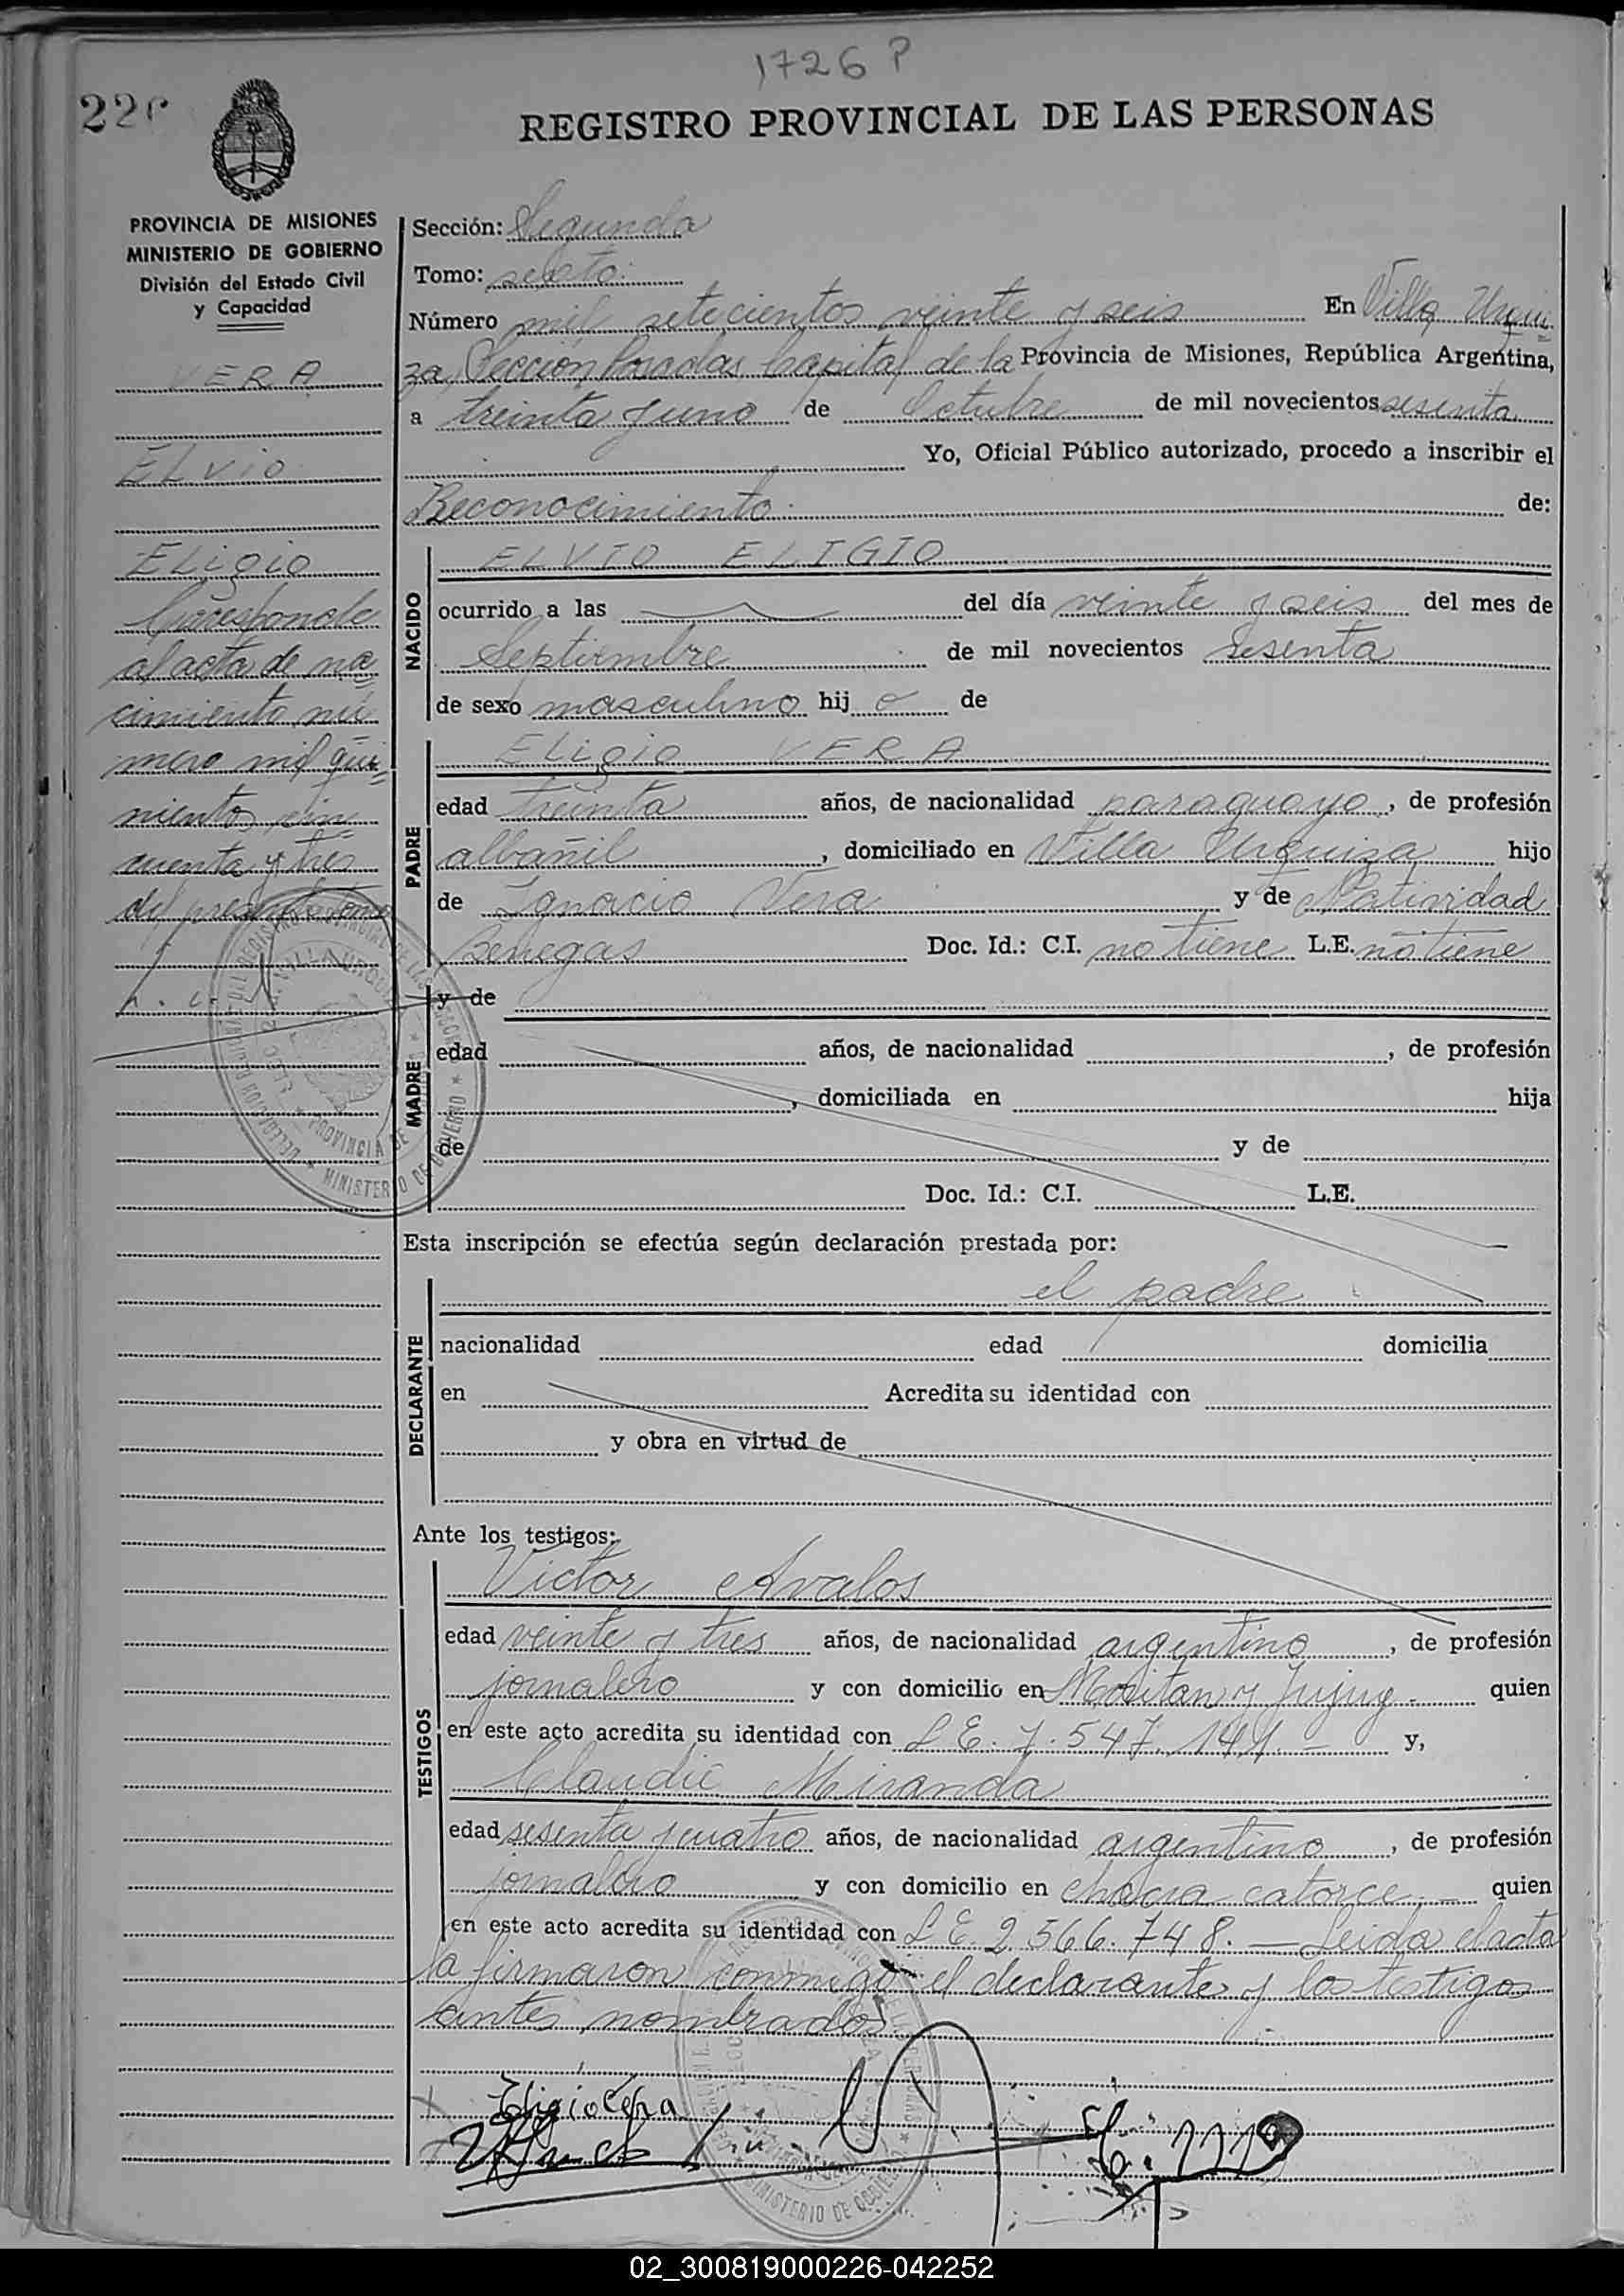 1726 P
226
REGISTRO PROVINCIAL DE LAS PERSONAS
PROVINCIA DE MISIONES
MINISTERIO DE GOBIERNO
División del Estado Civil
y Capacidad
VERA
ELVIO
ELIGIO
Corresponde
al acta de na
cimiento nú
mero mil qui
nientos cin
cuenta y tres
del presente tomo
Sección: Segunda
Tomo: sexto.
Número mil setecientos veinte y seis En Villa Urqui
za, Sección Posadas Capital de la Provincia de Misiones, República Argentina,
a treinta y uno de Octubre de mil novecientos sesenta
Yo, Oficial Público autorizado, procedo a inscribir el
Reconocimiento de:
NACIDO
ELVIO ELIGIO
ocurrido a las del día veinte y seis del mes de
Septiembre de mil novecientos sesenta
de sexo masculino hij o de
PADRE
ELIGIO VERA
edad treinta años, de nacionalidad paraguayo, de profesión
albañil, domiciliado en Villa Urquiza hijo
de Ignacio Vera y de Natividad
Benegas Doc. Id.: C.I. no tiene L.E. no tiene
MADRE
y de
edad años, de nacionalidad , de profesión
, domiciliada en hija
de y de
Doc. Id.: C.I. L.E.
Esta inscripción se efectúa según declaración prestada por:
DECLARANTE
el padre
nacionalidad edad domicilia
en Acredita su identidad con
y obra en virtud de
Ante los testigos:
TESTIGOS
Victor Avalos
edad veinte y tres años, de nacionalidad argentino, de profesión
jornalero y con domicilio en y Jujuy.- quien
en este acto acredita su identidad con L E. 7.547.141.- y,
Claudio Miranda
edad sesenta y cuatro años, de nacionalidad argentino, de profesión
jornalero y con domicilio en chacra catorce.- quien
en este acto acredita su identidad con L E. 2.566.748.- Leida el acta
la firmaron conmigo el declarante y los testigos
antes nombrados.
Eligio Vera
02_300819000226-042252